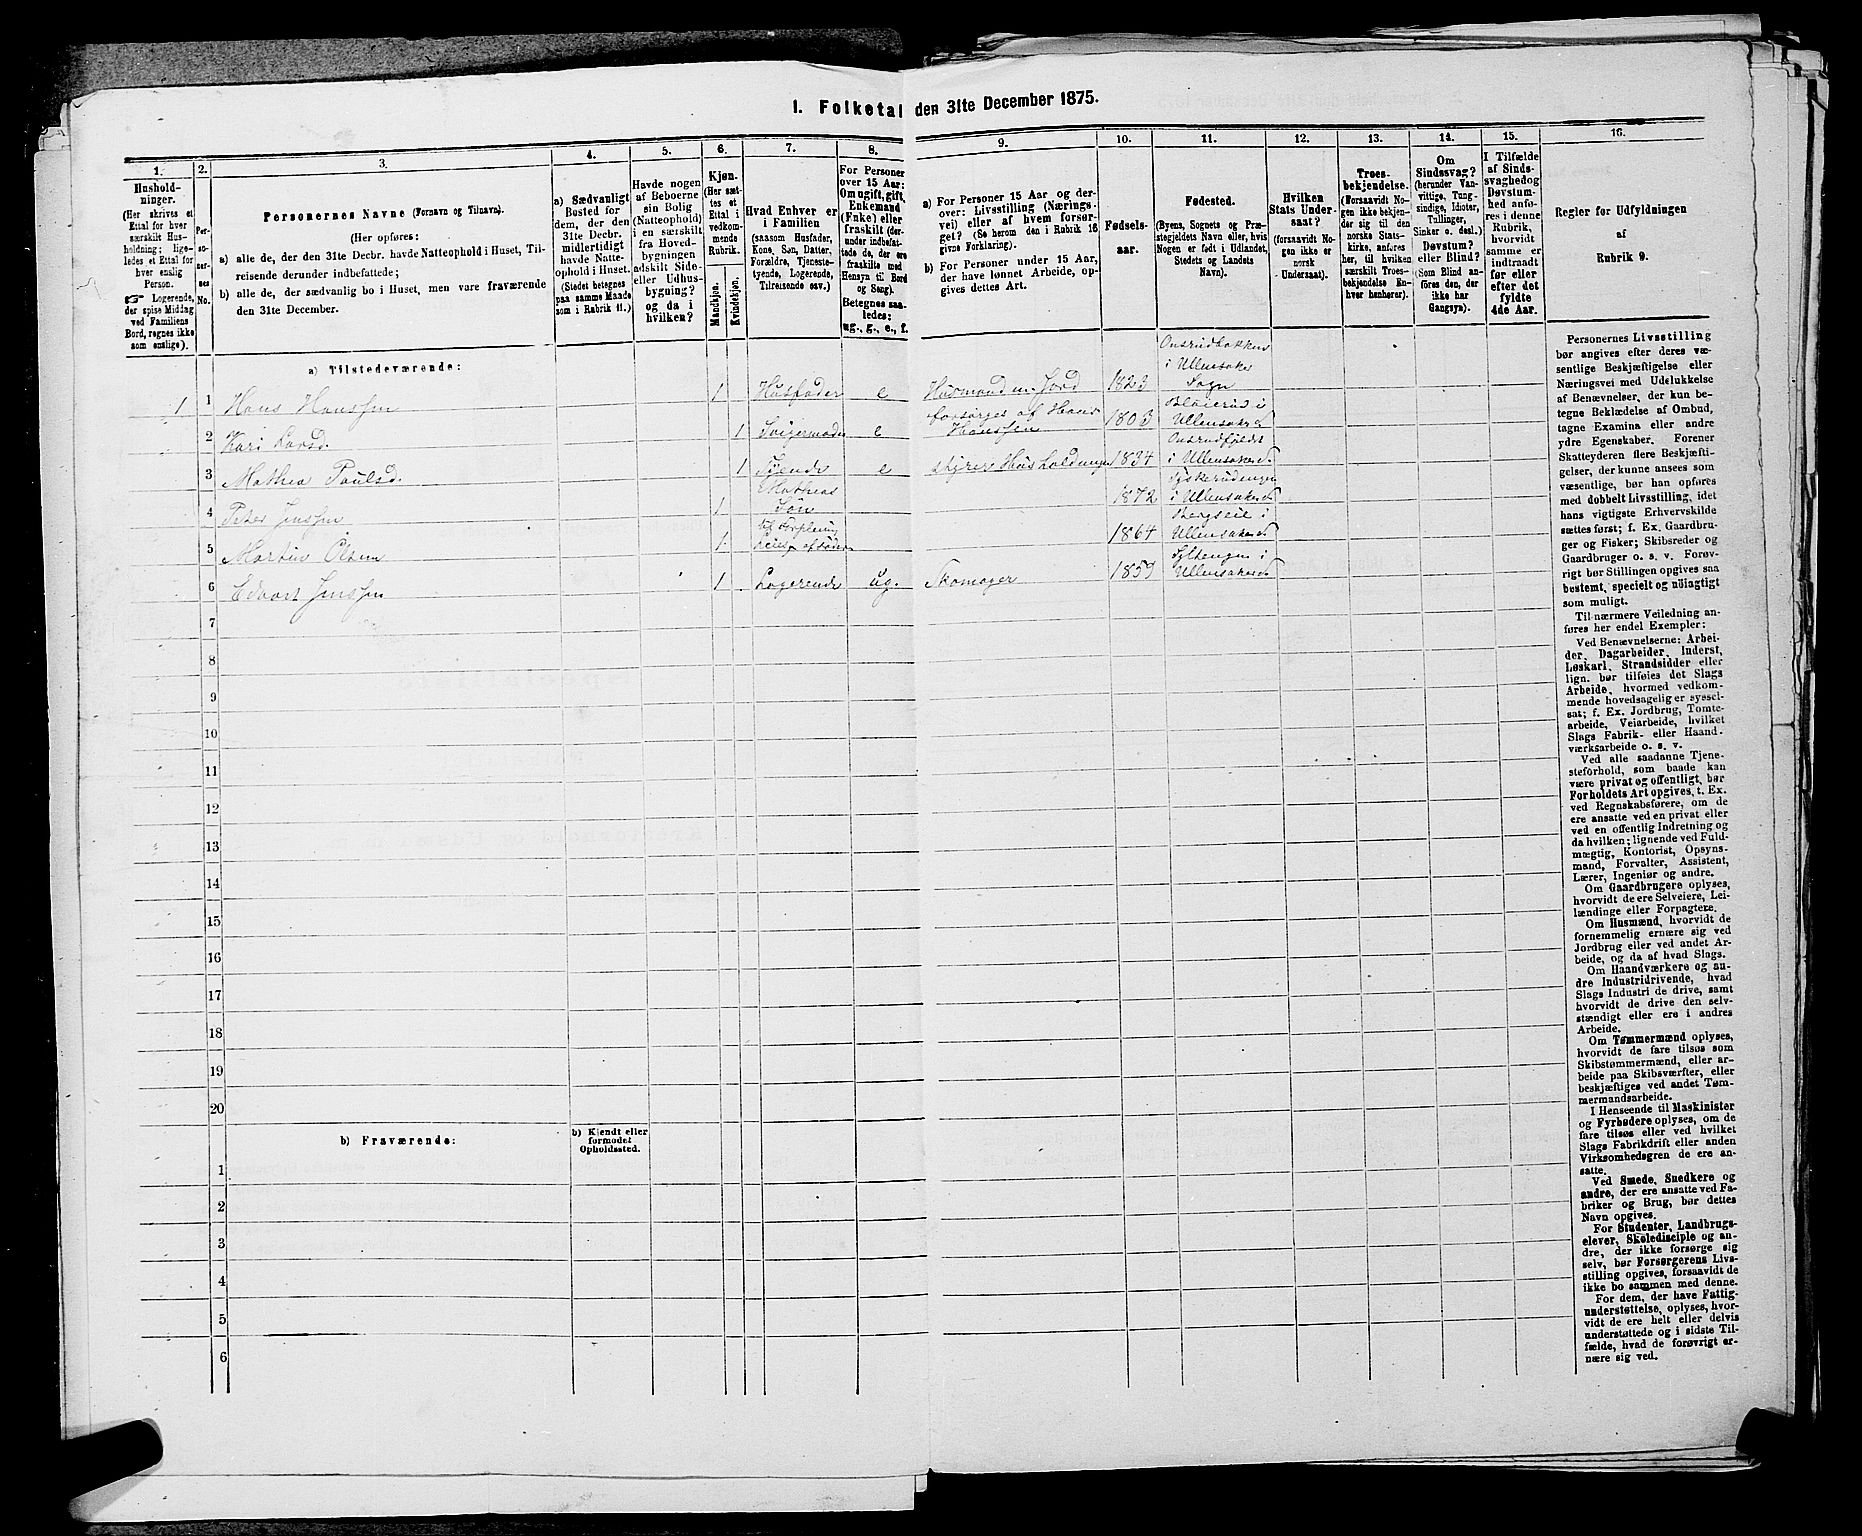 1. Folketal den 31te December 1875.
1.
Hushold-
ninger.
(Her skrives et
Ettal for hver
særskilt Hus-
holdning; lige-
ledes et Ettal for
hver enslig
Person.
☞ Logerende,
der spise Middag
ved Familiens
Bord, regnes ikke
som enslige).
2.
Per-
so-
ner-
nes
No.
3.
Personernes Navne (Fornavn og Tilnavn).
(Her opføres:
a) alle de, der den 31te Decbr. havde Natteophold i Huset, Til-
reisende derunder indbefattede;
b) alle de, der sædvanlig bo i Huset, men vare fraværende
den 31te December.
4.
a) Sædvanligt
Bosted for
dem, der den
31te Decbr.
midlertidigt
havde Natte-
ophold i Huset.
(Stedet betegnes
paa samme Maade
som i Rubrik 11.)
5.
Havde nogen
af Beboerne
sin Bolig
(Natteophold)
i en særskilt
fra Hoved-
bygningen
adskilt Side-
eller Udhus-
bygning?
og da i
hvilken?
6.
Kjøn.
(Her sæt-
tes et
Ettal i
vedkom-
mende
Rubrik.
Mandkjøn.
Kvindekjøn.
7.
Hvad Enhver er
i Familien
(saasom Husfader,
Kone, Søn, Datter,
Forældre, Tjeneste-
tyende, Logerende,
Tilreisende osv.)
8.
For Personer
over 15 Aar:
Om ugift, gift,
Enkemand
(Enke) eller
fraskilt (der-
under indbefat-
tede de, der ere
fraskilte med
Hensyn til Bord
og Seng).
Betegnes saa-
ledes:
ug., g., e., f.
9.
a) For Personer 15 Aar og der-
over: Livsstilling (Nærings-
vei) eller af hvem forsør-
get? (Se herom den i Rubrik 16
givne Forklaring).
b) For Personer under 15 Aar,
der have lønnet Arbeide, op-
gives dettes Art.
10.
Fødsels-
aar.
11.
Fødested.
(Byens, Sognets og Præ-
stegjeldets Navn eller, hvis
Nogen er født i Udlandet,
Stedets og Landets
Navn).
12.
Hvilken
Stats Under-
saat?
(forsaavidt No-
gen ikke er
norsk
Undersaat).
13.
Troes-
bekjendelse.
(Forsaavidt No-
gen ikke bekjen-
der sig til den
norske Stats-
kirke, anføres
her, til hvilken
særskilt Troes-
bekjendelse En-
hver henhører).
14.
Om
Sindssvag?
(herunder Van-
vittige, Tung-
sindige, Idioter,
Tullinger,
Sinker o. desl.)
Døvstum?
eller Blind?
(Som Blind an-
føres den, der
ikke har
Gangsyn).
15.
I Tilfælde
af Sinds-
svaghed og
Døvstum-
hed anfø-
res i denne
Rubrik,
hvorvidt
samme er
indtraadt
før eller
efter det
fyldte
4de Aar.
16.
Regler for Udfyldningen
af
Rubrik 9.
a) Tilstedeværende:
1 1 Hans Hanssen 1 Husfader e Husmand m. Jord 1823 Onsrudbakken i Ullensaker Sogn
2 Kari Larsd. 1 Svigermoder e forsørges af Hans Hanssen 1803 i Ullensaker
3 Mathea Paulsd. 1 Tjende e styrer Husholdningen 1834 i Ullensaker
4 Peter Jenssen 1 Matheas Søn 1872 i Ullensaker
5 Martin Olsen 1 1864 i Ullensaker
6 Edvart Jenssen 1 Logerende ug. Skomager 1859 i Ullensaker
7
8
9
10
11
12
13
14
15
16
17
18
19
20
b) Fraværende:
b) Kjendt eller
formodet
Opholdssted.
1
2
3
4
5
6
Personernes Livsstilling
bør angives efter deres væ-
sentlige Beskjæftigelse eller
Næringsvei med Udelukkelse
af Benævnelser, der kun be-
tegne Beklædelse af Ombud,
tagne Examina eller andre
ydre Egenskaber. Forener
Skatteyderen flere Beskjæfti-
gelser, der kunne ansees som
væsentlige, bør han opføres
med dobbelt Livsstilling, idet
hans vigtigste Erhvervskilde
sættes først; f. Ex. Gaardbru-
ger og Fisker; Skibsreder og
Gaardbruger o. s. v. Forøv-
rigt bør Stillingen opgives saa
bestemt, specielt og nøiagtigt
som muligt.
Til nærmere Veiledning an-
føres her endel Exempler:
Ved Benævnelserne: Arbei-
der, Dagarbeider, Inderst,
Løskarl, Strandsidder eller
lign. bør tilføies det Slags
Arbeide, hvormed vedkom-
mende hovedsagelig er syssel-
sat; f. Ex. Jordbrug, Tomte-
arbeide, Veiarbeide, hvilket
Slags Fabrik- eller Haand-
værksarbeide o. s. v.
Ved alle saadanne Tjene-
steforhold, som baade kan
være privat og offentligt, bør
Forholdets Art opgives, t. Ex.
ved Regnskabsførere, om de
ere ansatte ved en privat eller
ved en offentlig Indretning og
da hvilken; lignende ved Fuld-
mægtig, Kontorist, Opsyns-
mand, Forvalter, Assistent,
Lærer, Ingeniør og andre.
Om Gaardbrugere oplyses,
hvorvidt de ere Selveiere, Lei-
lændinge eller Forpagtere.
Om Husmænd, hvorvidt de
fornemmelig ernære sig ved
Jordbrug eller ved andet Ar-
beide, og da af hvad Slags.
Om Haandværkere og an-
dre Industridrivende, hvad
Slags Industri de drive, samt
hvorvidt de drive den selv-
stændigt eller ere i andres
Arbeide.
Om Tømmermænd oplyses,
hvorvidt de fare tilsøs som
Skibstømmermænd, eller ar-
beide paa Skibsværfter, eller
beskjæftiges ved andet Tøm-
mermandsarbeide.
I Henseende til Maskinister
og Fyrbødere oplyses, om de
fare tilsøs eller ved hvilket
Slags Fabrikdrift eller anden
Virksomhedsgren de ere an-
satte.
Ved Smede, Snedkere og
andre, der ere ansatte ved Fa-
briker og Brug, bør dettes
Navn opgives.
For Studenter, Landbrugs-
elever, Skoledisciple og an-
dre, der ikke forsørge sig
selv, bør Forsørgerens Livs-
stilling opgives, forsaavidt de
ikke bo sammen med denne.
For dem, der have Fattig-
understøttelse, oplyses, hvor-
vidt de ere helt eller delvis
understøttede og i sidste Til-
fælde, hvad de forøvrigt er-
nære sig ved.